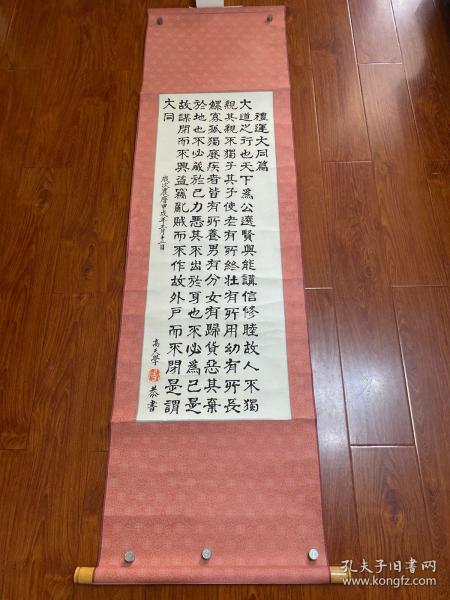 禮運大同篇
大道之行也天下為公選賢與能講信修睦故人不獨
親其親不獨子其子使老有所終壯有所用幼有所長
鰥寡孤獨廢疾者皆有所養男有分女有歸貨惡其棄
於地也不必藏於己力惡其不出於身也不必為己是
故謀閉而不興盜竊亂賊而不作故外戶而不閉是謂
大同
歲次農曆甲戌年五月十二日
高天 恭書
孔夫子旧书网
www.kongfz.com